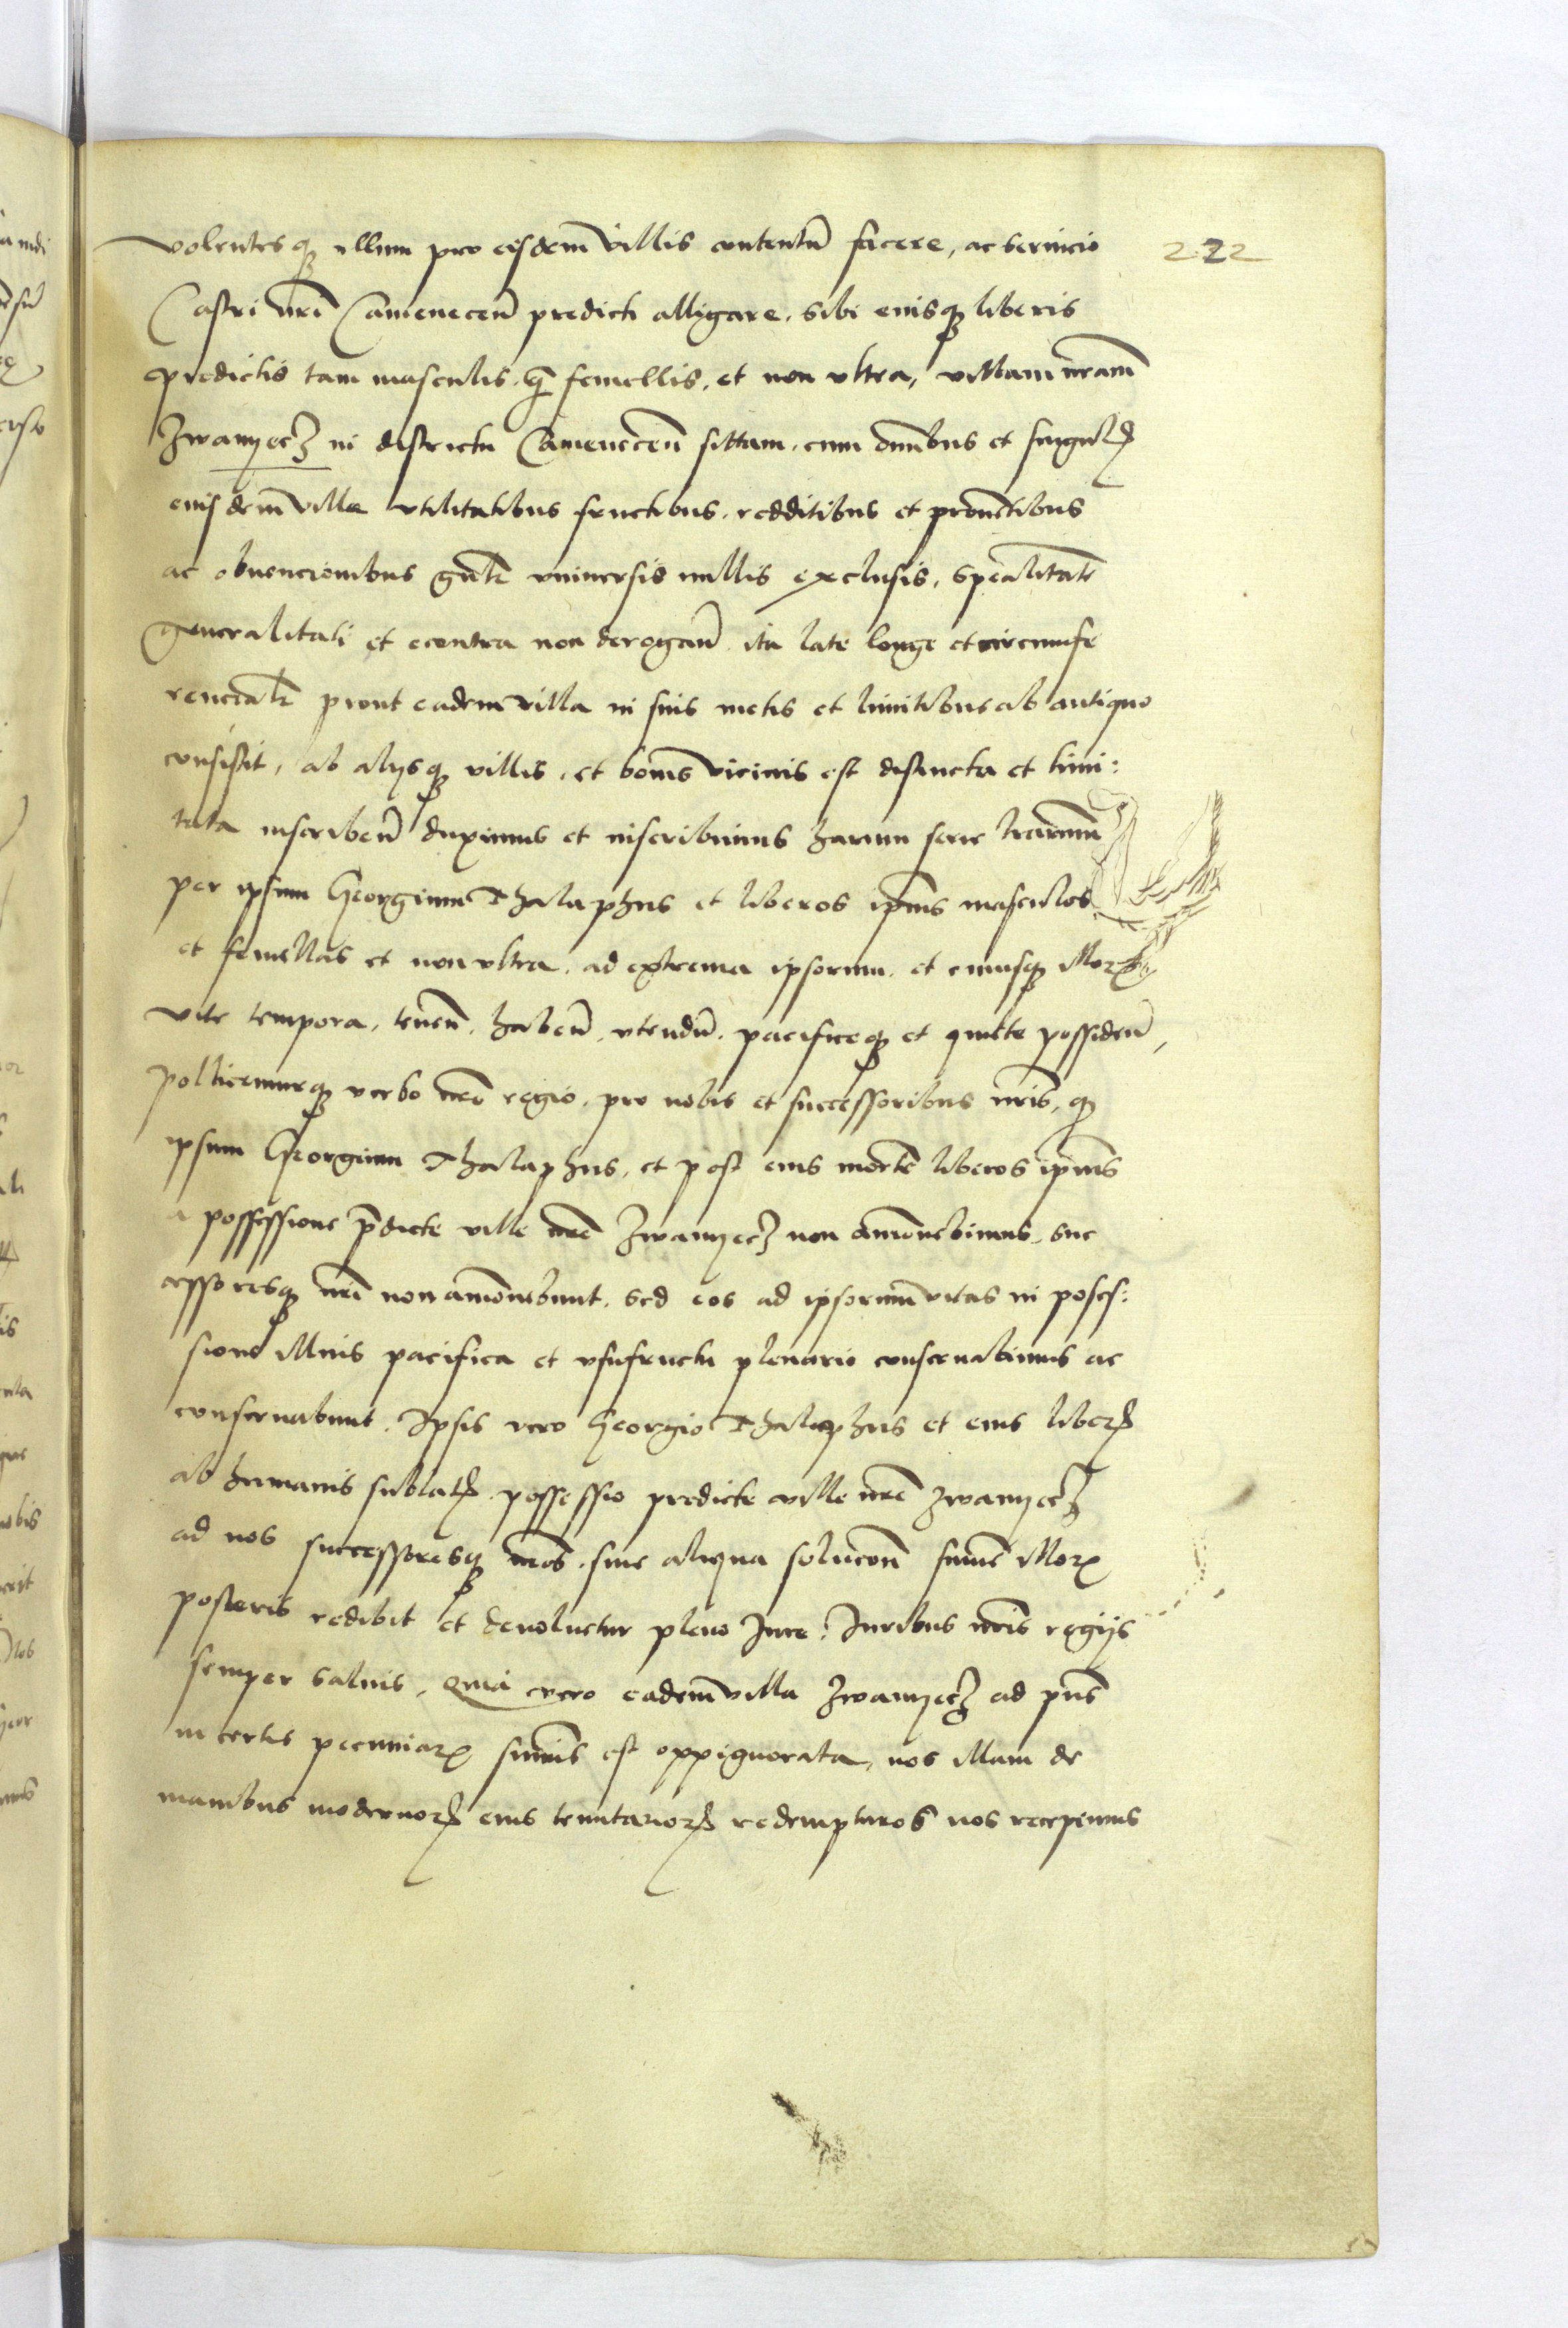 222
volentesq̃ illum pro eisdem villis contentũ facere, ac servicio
Castri nrĩ Camenecen̄ predicti alligare, sibi eiusq̃ liberis
predictis tam masculis q̃ femellis, et non vltra, villam nram̃
Zwanyecz in districtu Camenecen̄ sittam, cum om̃ibus et singul̃
eiusdem̃ ville vtilitatibus fructibus, redditibus et prouẽtibus
ac obuencionibus gñlr vniuersis nullis exclusis, spẽalitatẽ
generalitati et econtra non derogan̄ ita late longe et circumfe
rencialr̃ prout eadem villa in suis metis et limitibus ab antiquo
consistit, ab alysq̃ villis, et bonis vicinis est distincta et limi:
tata inscriben̄ duximus et inscribimus harum serie lrarum̃
per ipsum Georgium Thalaphus et liberos ipĩus masculos
et femellas et non vltra, ad extrema ipsorum, et cuiusq̃ illorꝝ
vite tempora, tenen̄, haben̄, vtendũ, pacificeq̃ et quiete possiden̄,
Pollicemurq̃ verbo nrõ regio, pro nobis et successoribus nrĩs, q̃
ipsum Georgium Thalaphus, et post eius mortẽ liberos ipĩus
a possessione p̃dicte ville nrẽ Zwanyecz non amouebimus, suc
cessoresq̃ nrĩ non amouebunt, sed eos ad ipsorum̃ vitas in posses:
sione illius pacifica et vsufructu plenario conseruabimus ac
conseruabunt. Ipsis vero Georgio Thalaphus et eius liberꝭ
ab humanis sublatꝭ possessio predicte ville nrẽ Zwanyecz
ad nos successoresq̃ nrõs, sine aliqua solucõne sum̃e illorꝝ
posteris redibit et deuoluetur pleno Iure. Iuribus nrĩs regijs
semper saluis, Quia vero eadem̃ villa Zwanyecz ad pñs
in certis pecuniarꝝ sum̃is est oppignorata, nos illam de
manibus modernorꝝ eius tenutariorꝝ redempturos nos recepimus